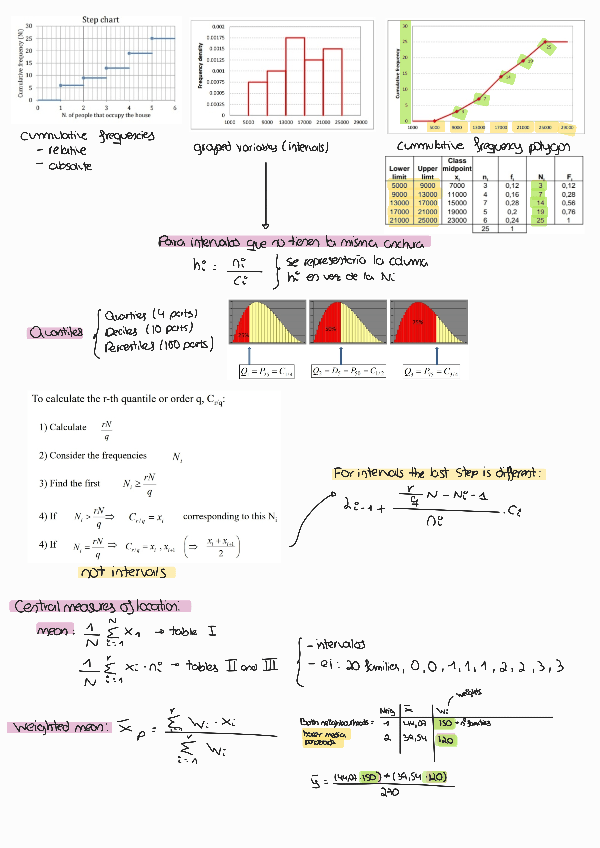 Step chart
Cumulative frequency (N)
30
25
20
15
10
5
0
0 1 2 3 4 5 6
N. of people that occupy the house
Frequency density
0.002
0.00175
0.0015
0.00125
0.001
0.00075
0.0005
0.00025
0
1000 5000 9000 13000 17000 21000 25000 29000
Cumulative frequency
30
25
20
15
10
5
0
3
7
14
19
25
1000 5000 9000 13000 17000 21000 25000 29000
cummulative frequencies
- relative
- absolute
grouped variables (intervals)
cummulative frequency polygon
Lower limit Upper limit Class midpoint xi ni fi Ni Fi
5000 9000 7000 3 0,12 3 0,12
9000 13000 11000 4 0,16 7 0,28
13000 17000 15000 7 0,28 14 0,56
17000 21000 19000 5 0,2 19 0,76
21000 25000 23000 6 0,24 25 1
25 1
Para intervalos que no tienen la misma anchura
hi = ni / ci { se representaría la columna
hi en vez de la Ni
Quantiles { Quartiles (4 parts)
Deciles (10 parts)
Percentiles (100 parts)
25%
50%
75%
Q1 = P25 = C1/4
Q2 = D5 = P50 = C1/2
Q3 = P75 = C3/4
To calculate the r-th quantile or order q, Cr/q:
1) Calculate rN/q
2) Consider the frequencies Ni
3) Find the first Ni ≥ rN/q
4) If Ni > rN/q ⇒ Cr/q = xi corresponding to this Ni
4) If Ni = rN/q ⇒ Cr/q = xi, xi+1 (⇒ (xi + xi+1)/2)
not intervals
For intervals the last step is different:
Li-1 + (r/q N - Ni-1)/ni · ci
Central measures of location:
mean: 1/N Σ(i=1, N) x1 → table I
1/N Σ(i=1, r) xi · ni → tables II and III
{ - intervalos
- ej: 20 families, 0, 0, 1, 1, 1, 2, 2, 3, 3
weighted mean: x̄p = Σ(i=1, r) wi · xi / Σ(i=1, r) wi
weights
Neig x̄ wi
Both neighbourhoods = 1 44,07 150 → nº families
2 39,54 120
ȳ = ((44,07 · 150) + (39,54 · 120)) / 270